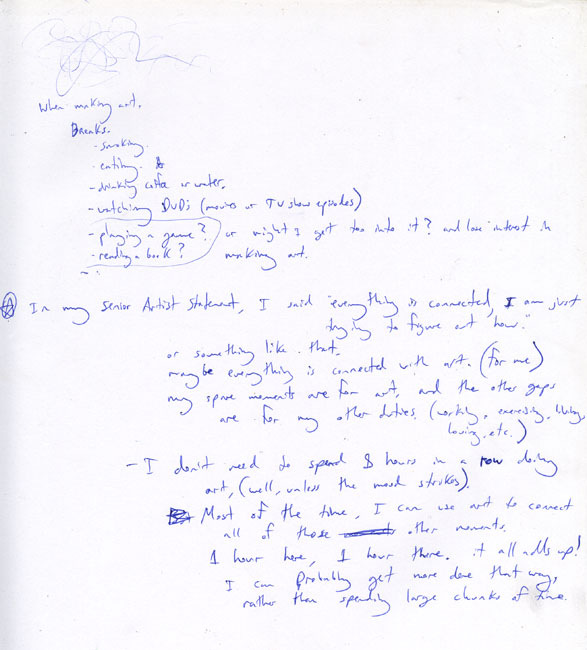 When making art.
Breaks.
- smoking.
- eating.
- drinking coffee or water.
- watching DVDs (movies or TV show episodes)
- playing a game? or might I get too into it? and lose interest in
- reading a book? making art.
In my Senior Artist Statement, I said "everything is connected, I am just
trying to figure out how."
or something like that.
maybe everything is connected with art. (for me)
my spare moments are for art, and the other gaps
are for my other duties. (working, exercising,
loving, etc.)
- I don't need to spend 8 hours in a row doing
art, (well, unless the mood strikes).
Most of the time, I can use art to connect
all of those other moments.
1 hour here, 1 hour there. it all adds up!
I can probably get more done that way,
rather than spending large chunks of time.